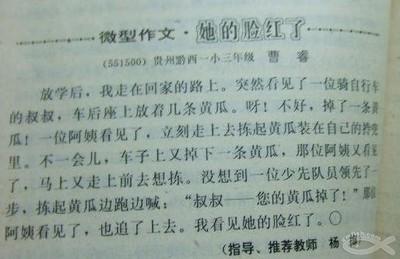 微型作文·她的脸红了
(551500)贵州黔西一小三年级 曹睿
放学后，我走在回家的路上。突然看见了一位骑自行车
的叔叔，车后座上放着几条黄瓜。呀！不好，掉了一条黄
瓜！一位阿姨看见了，立刻走上去拣起黄瓜装在自己的挎兜
里。不一会儿，车子上又掉下一条黄瓜，那位阿姨又看见
了，马上又走上前去想拣。没想到一位少先队员领先了一
步，拣起黄瓜边跑边喊：“叔叔——您的黄瓜掉了！”那位
阿姨看见了，也追了上去。我看见她的脸红了。〇
(指导、推荐教师 杨